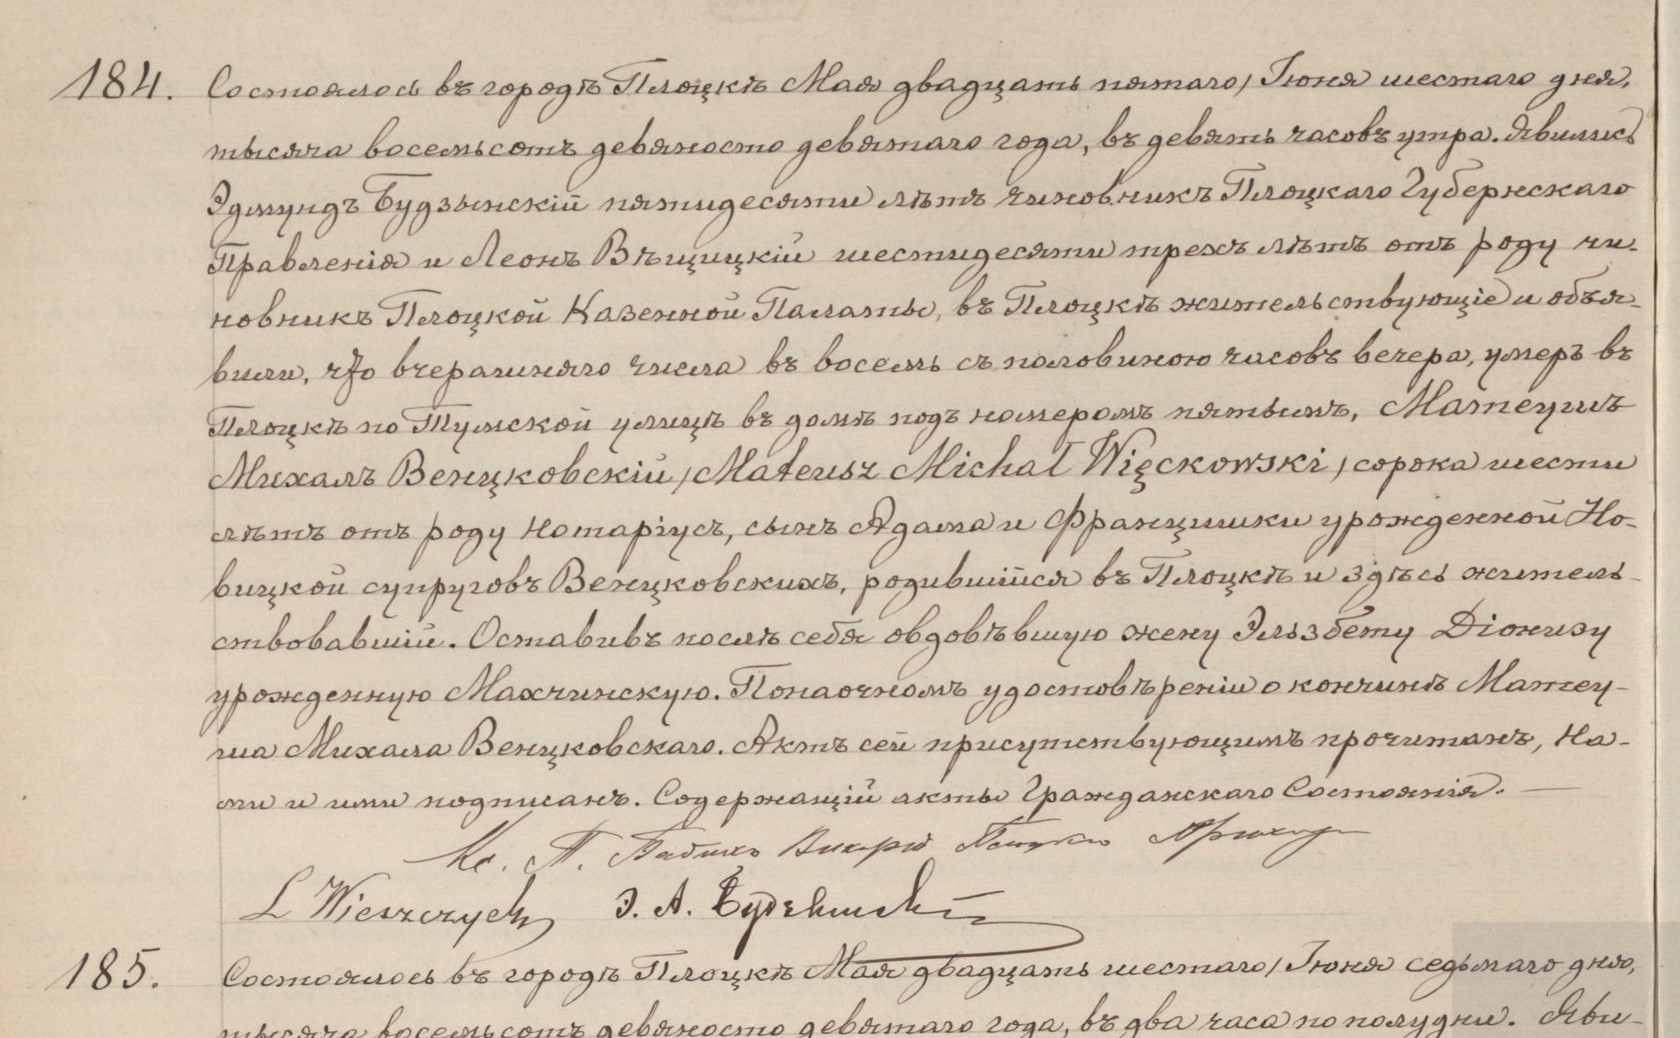 184. Состоялось въ городѣ Плоцкѣ Мая двадцать пятаго / Іюня шестаго дня,
тысяча восемьсотъ девяносто девятаго года, въ девять часовъ утра. Явились
Эдмундъ Будзынскій пятидесяти лѣтъ чиновникъ Плоцкаго Губернскаго
Правленія и Леонъ Вѣщицкій шестидесяти трехъ лѣтъ отъ роду чи-
новникъ Плоцкой Казенной Палаты, въ Плоцкѣ жительствующіе и объя-
вили, что вчерашняго числа въ восемь съ половиною часовъ вечера, умеръ въ
Плоцкѣ по Тумской улицѣ въ домѣ подъ номеромъ пятымъ, Матеушъ
Михалъ Венцковскій / Mateusz Michał Więckowski / сорока шести
лѣтъ отъ роду Нотаріусъ, сынъ Адама и Францишки урожденной Но-
вицкой супруговъ Венцковскихъ, родившійся въ Плоцкѣ и здѣсь житель-
ствовавшій. Оставивъ послѣ себя овдовѣвшую жену Эльзбету Діонизу
урожденную Махчинскую. По наочномъ удостовѣреніи о кончинѣ Матеу-
ша Михала Венцковскаго. Актъ сей присутствующимъ прочитанъ, На-
ми и ими подписанъ. Содержащій акты Гражданскаго Состоянія.
Кс. П. Викрій
L Wieszczycki Э. А. Будзынскій
185. Состоялось въ городѣ Плоцкѣ Мая двадцать шестаго / Іюня седьмаго дня,
тысяча восемьсотъ девяносто девятаго года, въ два часа по полудни. Яви-